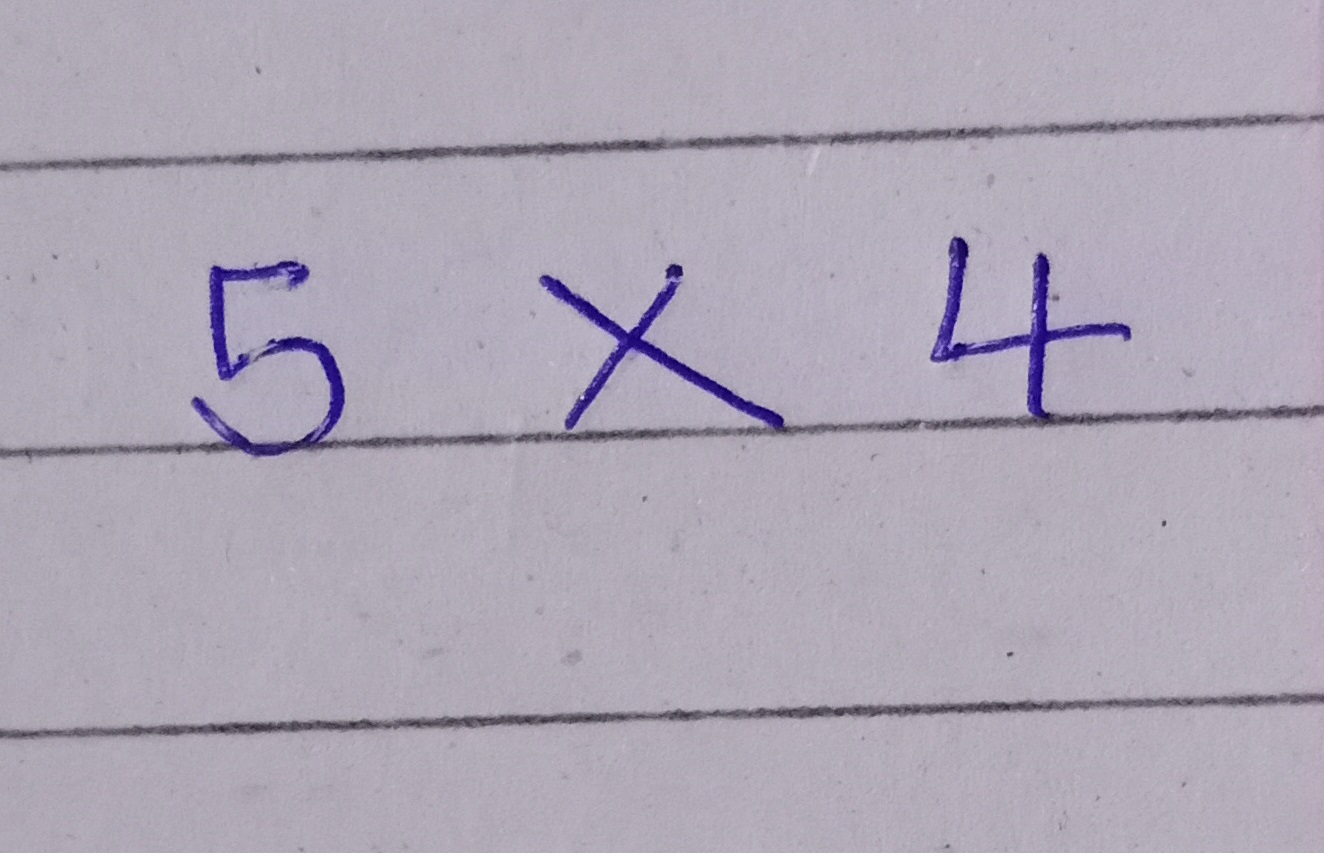 5 × 4